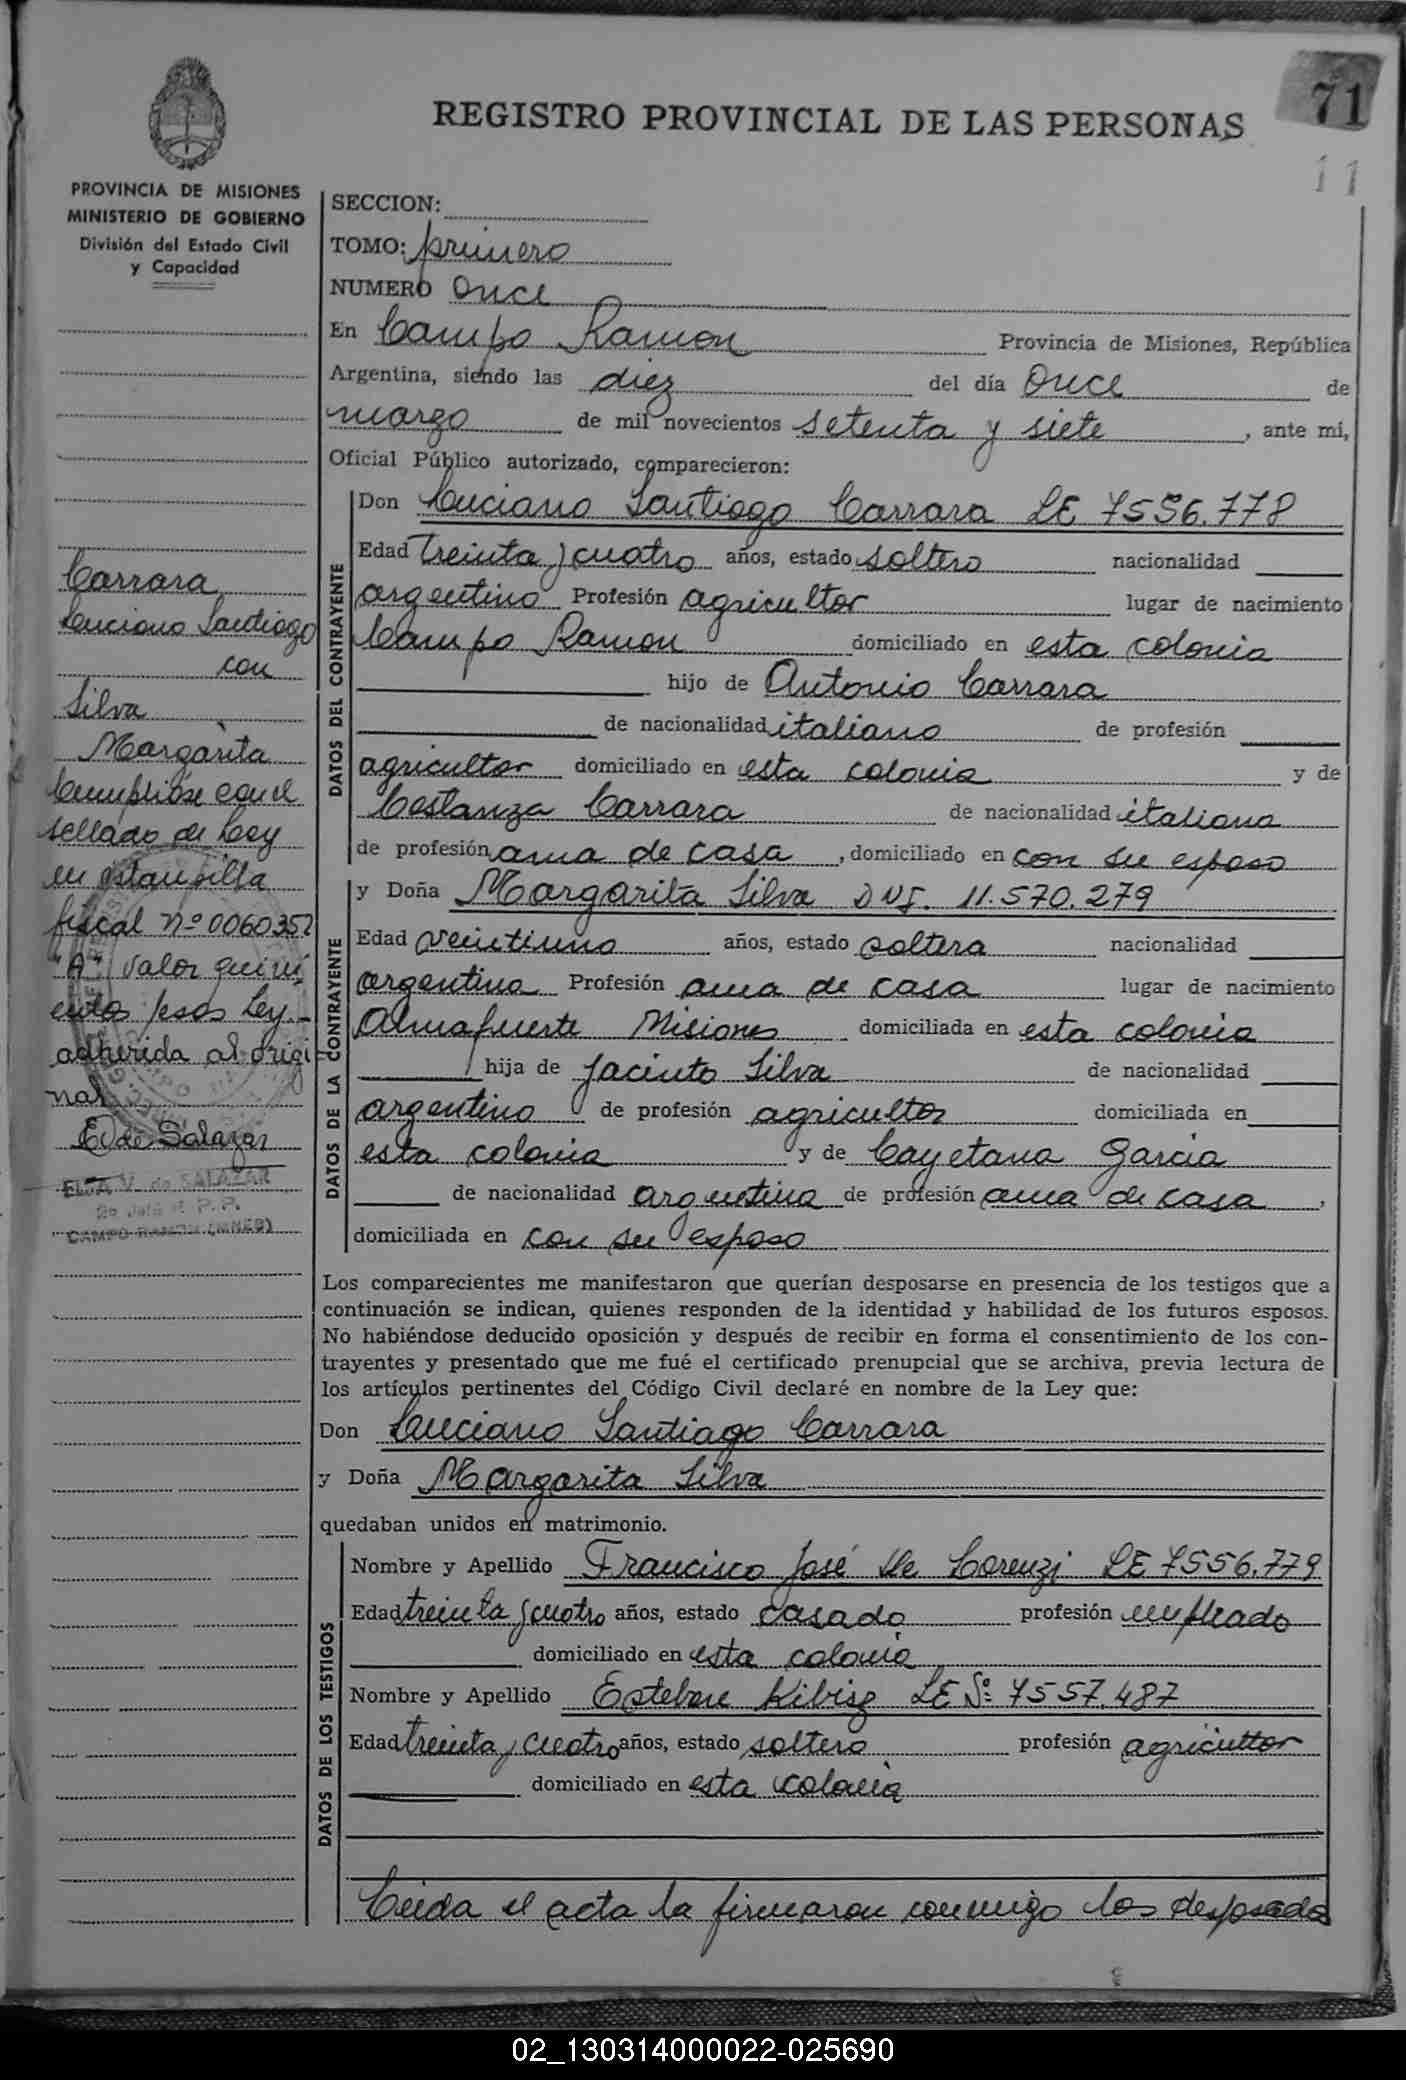 71
REGISTRO PROVINCIAL DE LAS PERSONAS
11
PROVINCIA DE MISIONES
MINISTERIO DE GOBIERNO
División del Estado Civil
y Capacidad
Carrara
Luciano Santiago
con
Silva
Margarita
Cumplióse con el
sellado de Ley
en estampilla
fiscal nº 0060352
"A" valor quini
entos pesos Ley.-
adherida al origi
nal
E. de Salazar
ELSA V. de SALAZAR
CAMPO RAMON (MNES)
SECCION:
TOMO: primero
NUMERO Once
En Campo Ramon Provincia de Misiones, República
Argentina, siendo las diez del día Once de
marzo de mil novecientos setenta y siete, ante mí,
Oficial Público autorizado, comparecieron:
DATOS DEL CONTRAYENTE
Don Luciano Santiago Carrara LE 7556.778
Edad treinta y cuatro años, estado soltero nacionalidad
argentino Profesión agricultor lugar de nacimiento
Campo Ramon domiciliado en esta colonia
hijo de Antonio Carrara
de nacionalidad italiano de profesión
agricultor domiciliado en esta colonia y de
Costanza Carrara de nacionalidad italiana
de profesión ama de casa, domiciliado en con su esposo
DATOS DE LA CONTRAYENTE
y Doña Margarita Silva DNI. 11.570.279
Edad veintiuno años, estado soltera nacionalidad
argentina Profesión ama de casa lugar de nacimiento
Almafuerte Misiones domiciliada en esta colonia
hija de Jacinto Silva de nacionalidad
argentino de profesión agricultor domiciliada en
esta colonia y de Cayetana Garcia
de nacionalidad argentina de profesión ama de casa,
domiciliada en con su esposo
Los comparecientes me manifestaron que querían desposarse en presencia de los testigos que a
continuación se indican, quienes responden de la identidad y habilidad de los futuros esposos.
No habiéndose deducido oposición y después de recibir en forma el consentimiento de los con-
trayentes y presentado que me fué el certificado prenupcial que se archiva, previa lectura de
los artículos pertinentes del Código Civil declaré en nombre de la Ley que:
Don Luciano Santiago Carrara
y Doña Margarita Silva
quedaban unidos en matrimonio.
DATOS DE LOS TESTIGOS
Nombre y Apellido Francisco José De Lorenzi LE 7556.779
Edad treinta y cuatro años, estado casado profesión empleado
domiciliado en esta colonia
Nombre y Apellido Esteban Kibisz LE Nº 7557.487
Edad treinta y cuatro años, estado soltero profesión agricultor
domiciliado en esta colonia
Leida el acta la firmaron conmigo los desposados
02_130314000022-025690